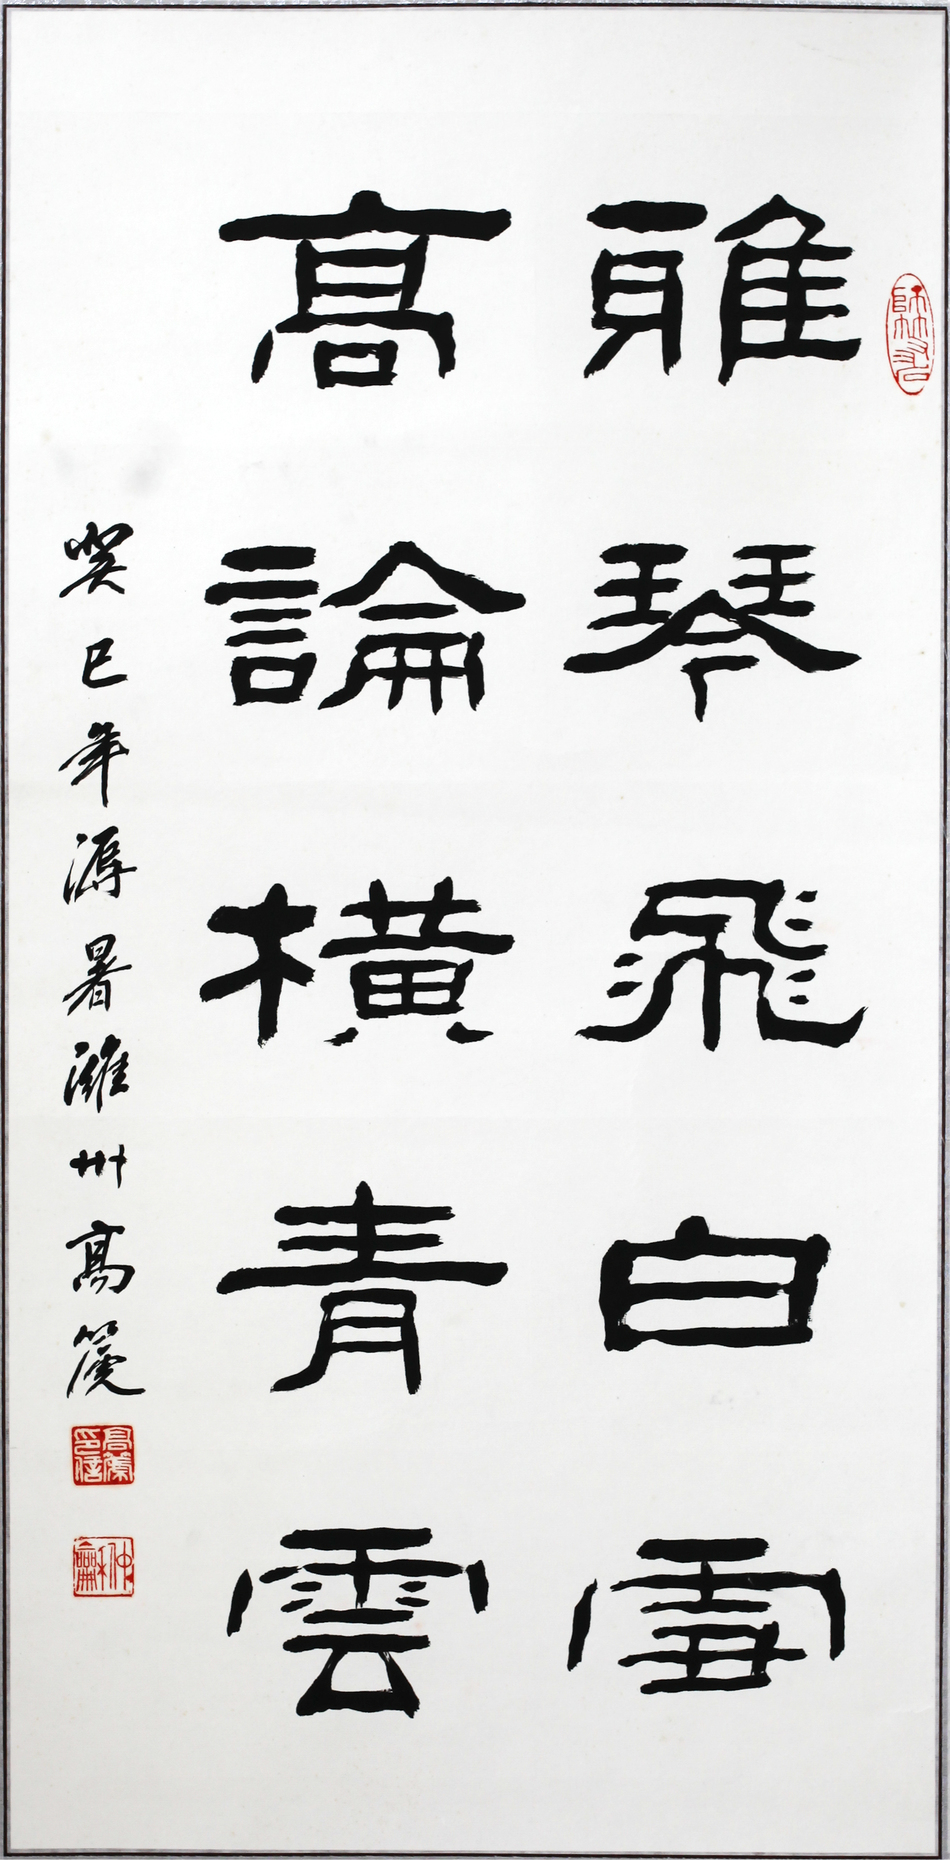 雅琴飛白雪
高論橫青雲
癸巳年溽暑濰州高篪